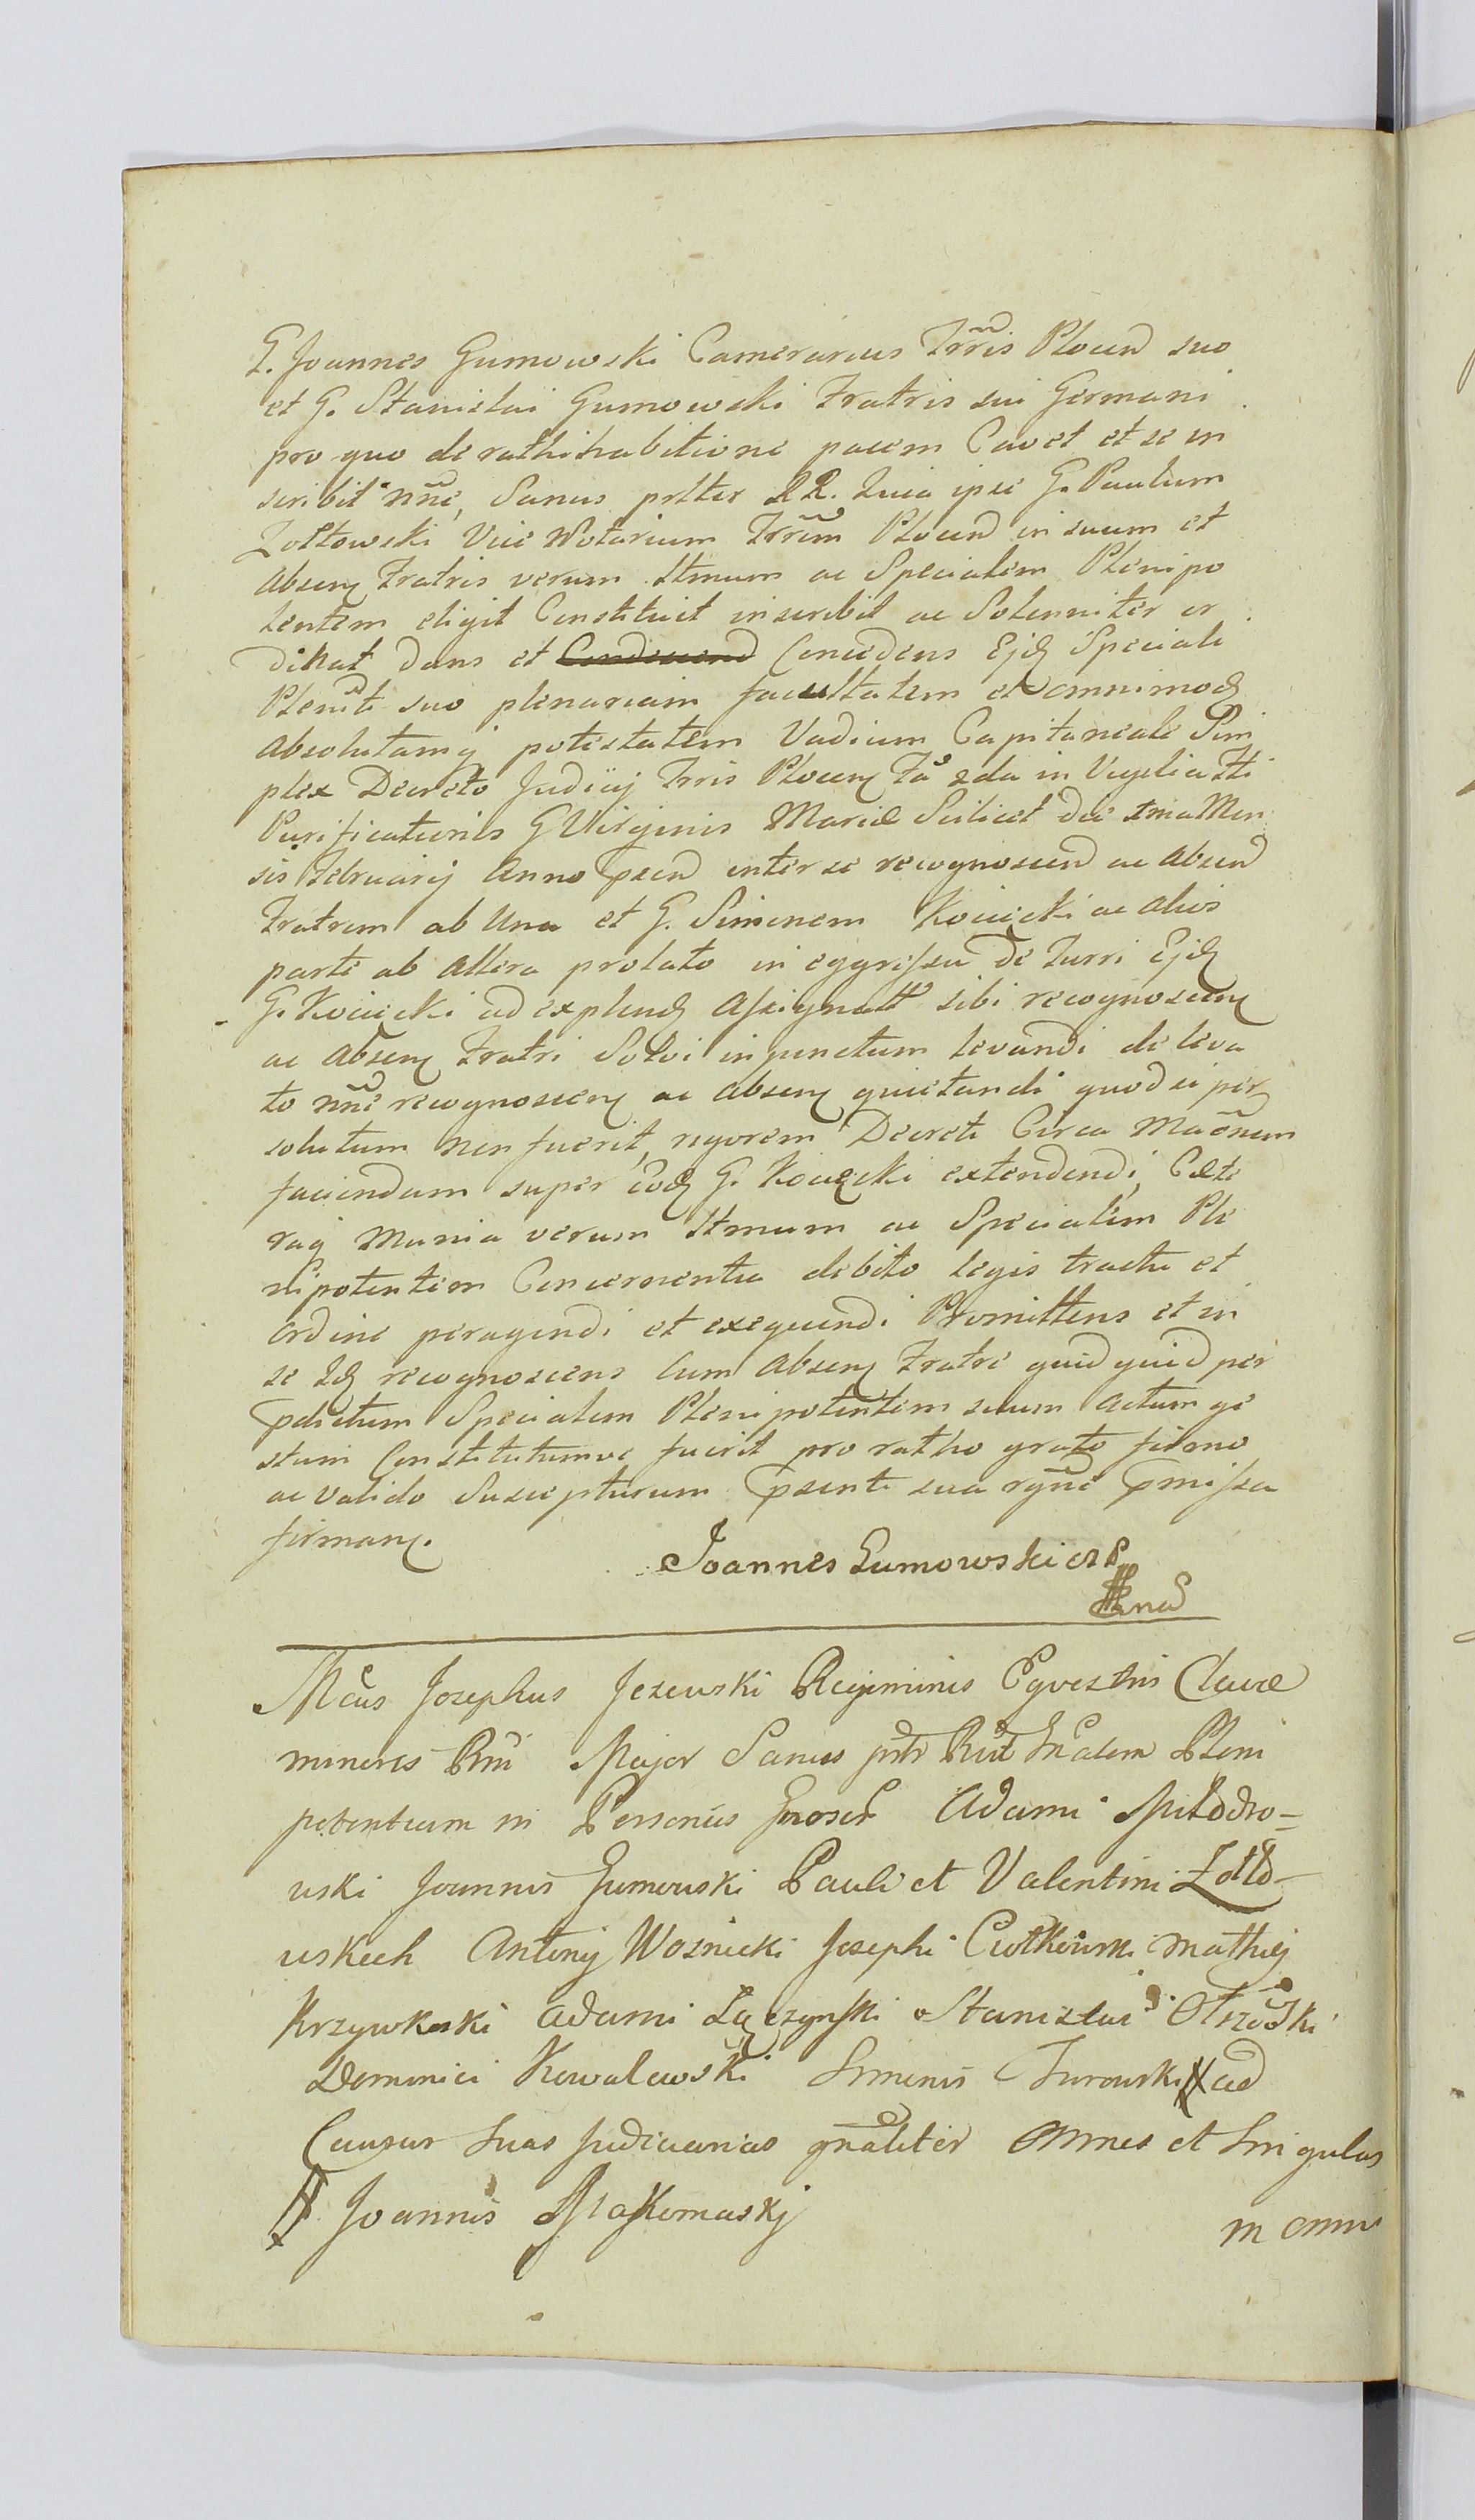 G. Joannes Gumowski Camerarius Trr̃is Plocen̄ suo
et G. Stanislai Gumowski Fratris sui Germani
pro quo de rathihabitione pacem Cavet et se in
scribit nñe, Sanus pltter RR. Quia ipse G. Paulum
Zołtowski Vice Notarium Trr̃im Plocen̄ in suum et
absen Fratris verum ltmum ac Specialem Plenipo
tentem eligit Constituit inscribit ac Solenniter or
dinat dans et Concedens Ejd Speciali
Plenīti suo plenariam facultatem et omnimod
absolutamq potestatem Vadium Capitaneale Sim
plex Decreto Judicij Trris Plocen Fa 2da in Vigilia Fti
Purificationis G Virginis Mariæ Scilicet die 1ma Men
sis Februarij Anno p̄sen̄ inter se recognoscen̄ ac absen̄
Fratrem ab una et G. Simonem Kocięcki ac alios
parte ab altera prolato in egressu de Turri Ejd
G. Kocięcki ad explend assignatt sibi recognoscen
ac absen Fratri Solvi injunctum levandi de leva
to nñe recognoscen ac absen quietandi quod si per
solutum non fuerit, rigorem Decreti Circa Maõnem
faciendam super eod G. Kocięcki extendendi, Cæte
raq Munia verum ltmum ac Specialem Ple
nipotentem Concernentia debito legis tractu et
ordine peragendi et exequendi Promittens et in
se Id recognoscens cum absen Fratre quid quid per
p̄dictum Specialem Plenipotentem suum actum ge
stum Constitutumve fuerit pro ratho grato firmo
ac valido Suscepturum p̄senti sua rg̃ne p̄missa
firman.
Joannes Gumowski
Mcus Josephus Jezewski Regiminis Eqvestris Clavæ
minoris Major Sanus Pleni
potentiam in Personis Gnoser Adami Miłodro=
wski Joannis Gumowski Pauli et Valentini Zołto-
wskich Antonij Woznicki Josephi Cwtkowski Mathiej
Krzywkoski Adami Łączynski Stanislai Olszewski
Dominici Kowalewski Simonis Turowski # ad
Causas suas Judiciarias gnaliter Omnes et Singulas
# Joannis Makomaskj
in omni